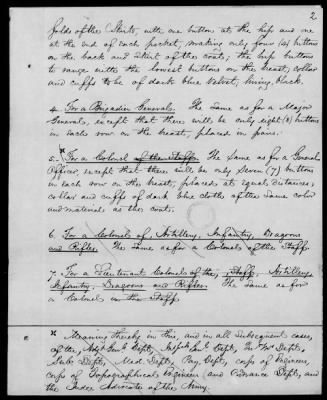 2
folds of the Skirts, with one button at the hip and one
at the end of each pocket, making only four (4) buttons
on the back and skirt of the coat; the hip buttons
to range with the lowest buttons on the breast, collar
and cuffs to be of dark blue velvet, lining, black.
4. For a Brigadier General. The same as for a Major
General, except that there will be only eight (8) buttons
in each row on the breast, placed in pairs.
5. * For a Colonel of the Staff. The same as for a General
Officer, except that there will be only seven (7) buttons
in each row on the breast, placed at equal distances;
collar and cuffs of dark blue cloth of the same color
and material as the coat.
6. For a Colonel of Artillery, Infantry, Dragoons
and Rifles. The same as for a Colonel of the Staff.
7. For a Lieutenant Colonel of the, Staff, Artillery
Infantry, Dragoons and Rifles. The same as for
a Colonel in the Staff.
* Meaning thereby in this, and in all Subsequent cases,
of the, Adjt Genl's Dept, Inspect. Genl Dept, Qr Mr's Dept,
Subs Dept, Med. Dept, Pay Dept, corps of Engineers,
corps of Topographical Engineers and Ordnance Dept, and
the Judge Advocate of the Army.